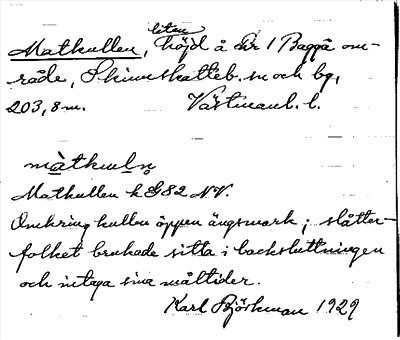 liten
Matkullen, höjd å Gr 1 Baggå om-
råde, Skinnskatteb. sn och bg,
203,8 m. Västmanl. l.
màtkuln
Matkullen k G82 N.V.
Omkring kullen öppen ängsmark; slåtter-
folket brukade sitta i backsluttningen
och intaga sina måltider.
Karl Björkman 1929